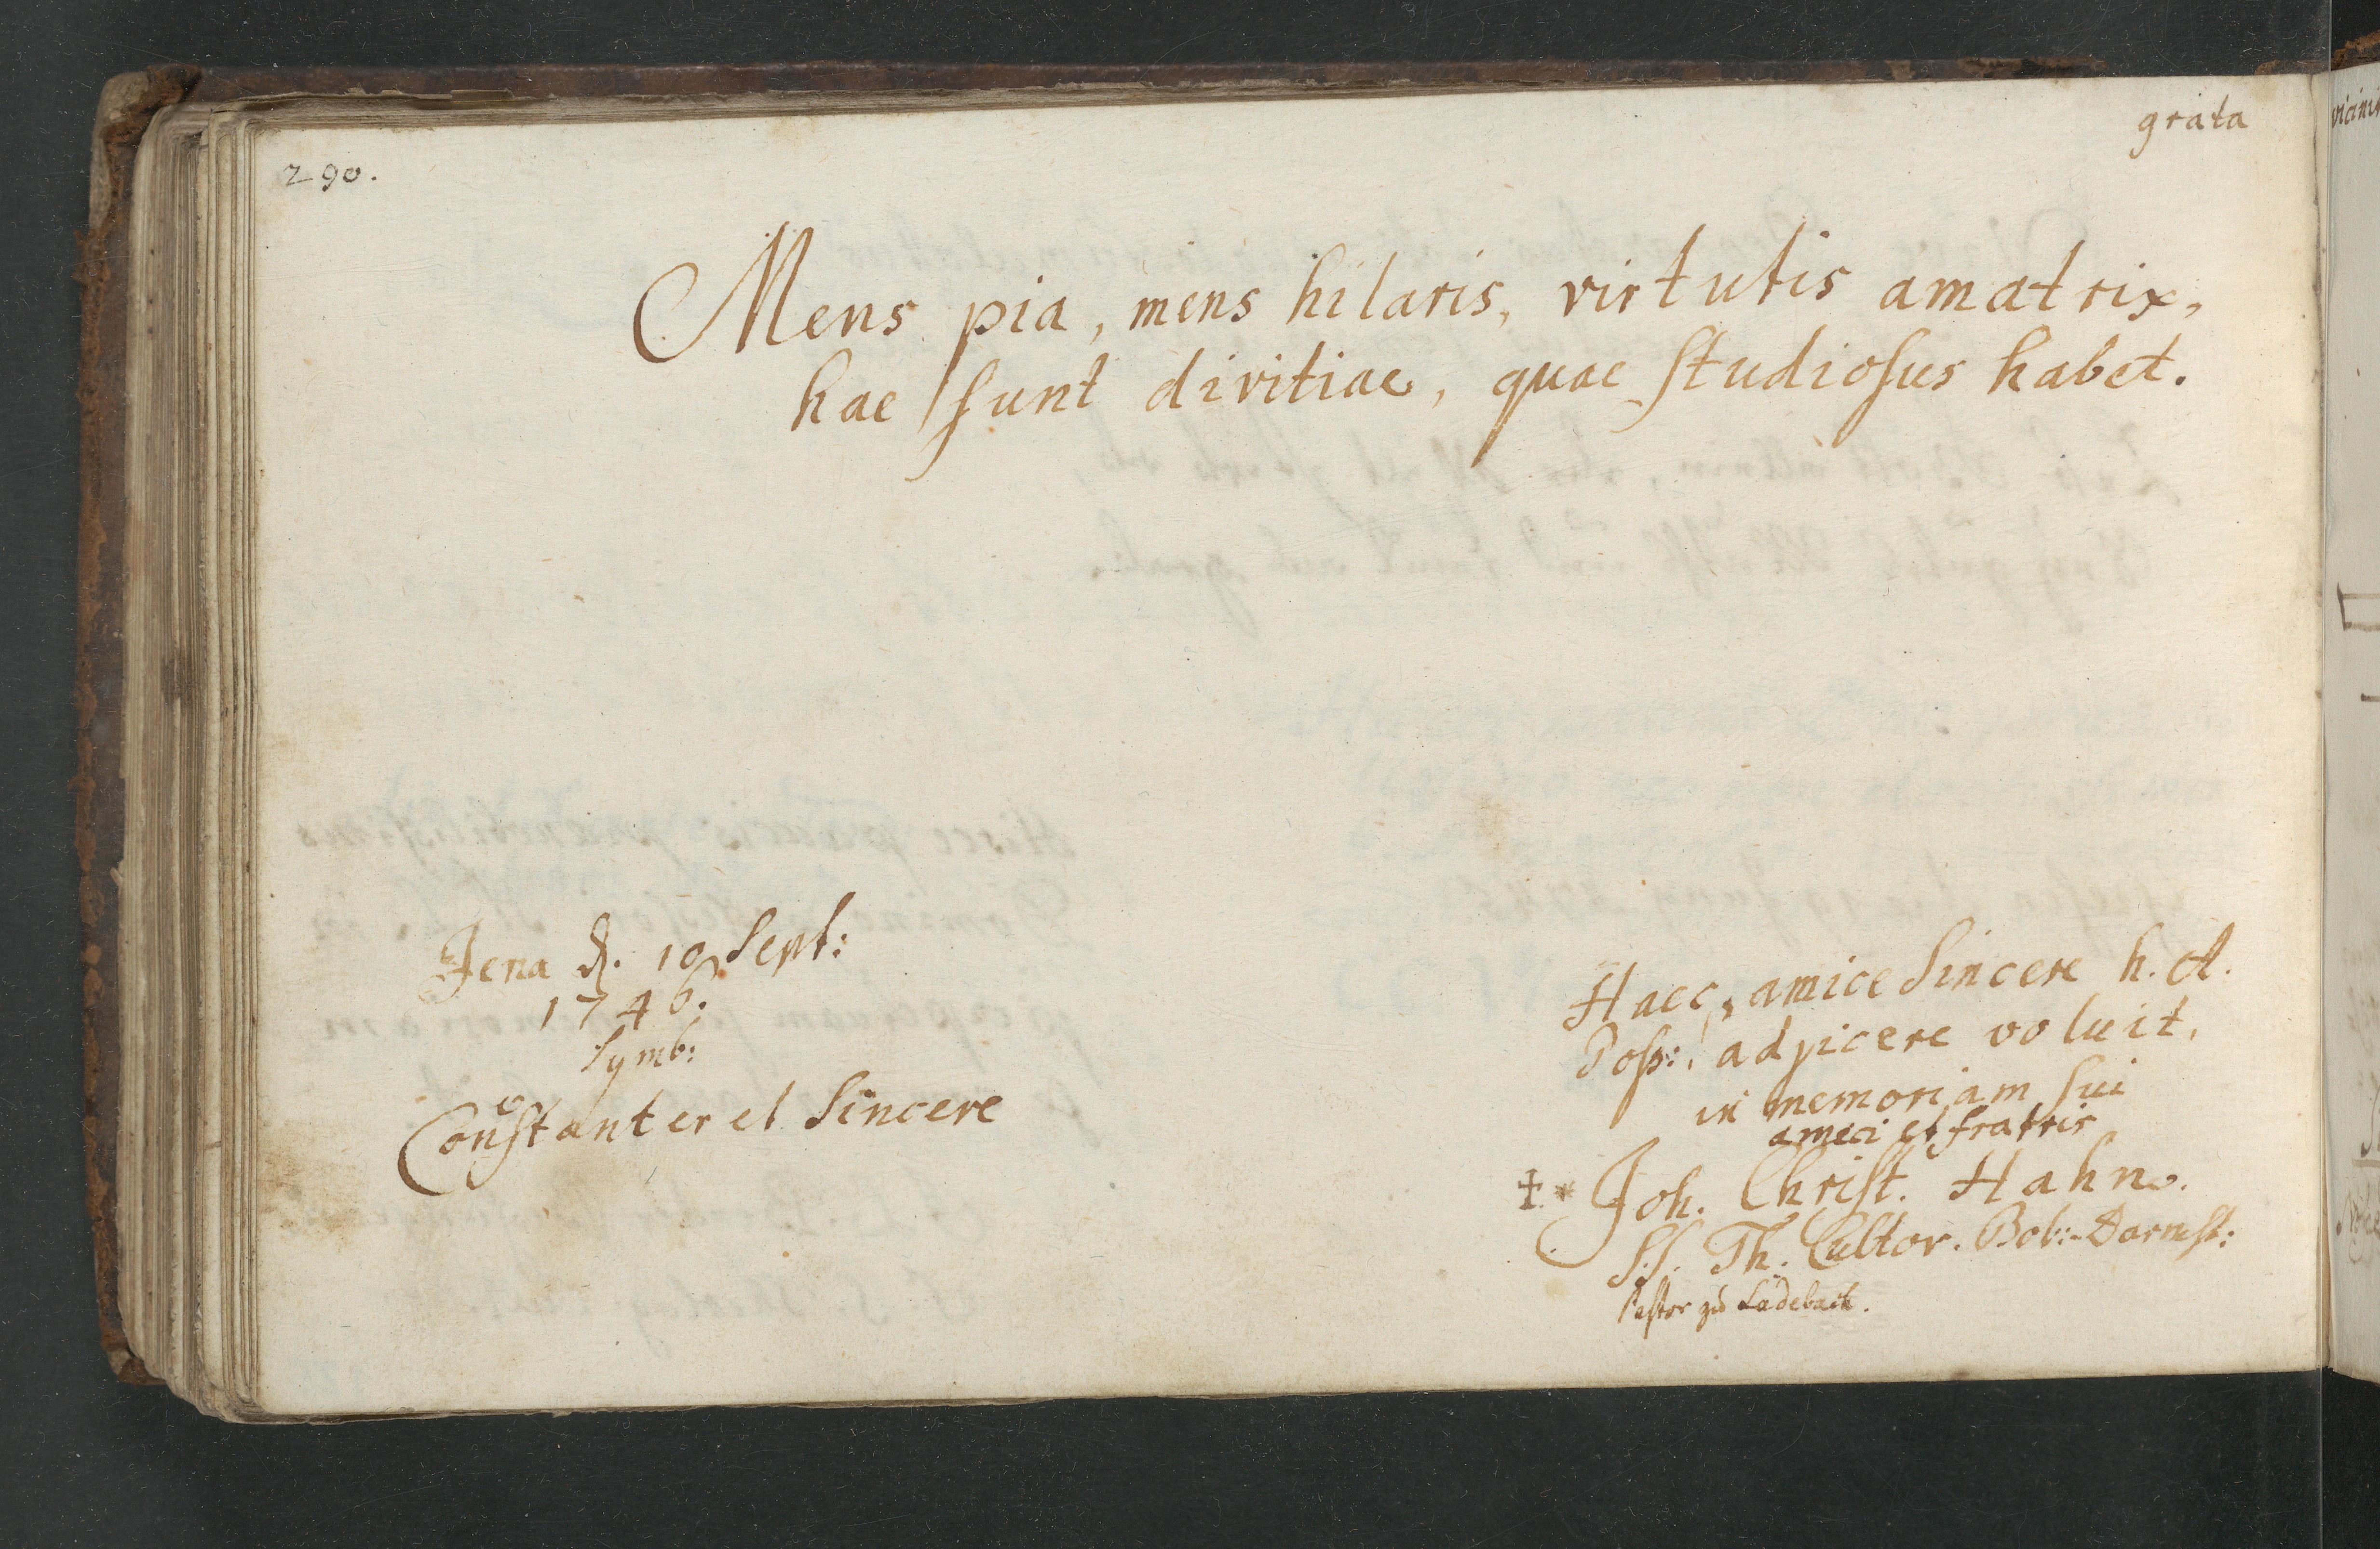 290.
grata
Mens pia, mens hilaris, virtutis amatrix,
hae sunt divitiae, quae studiosus habet.
Jena d. 10 Sept:
1746.
Symb:
Constanter et sincere
Haec, amice sincere h. A.
Poss:, adpicere voluit,
in memoriam sui
amici et fratris
‡ * Joh. Christ. Hahn.
S.S. Th. Cultor. Darmst:
Pastor zu